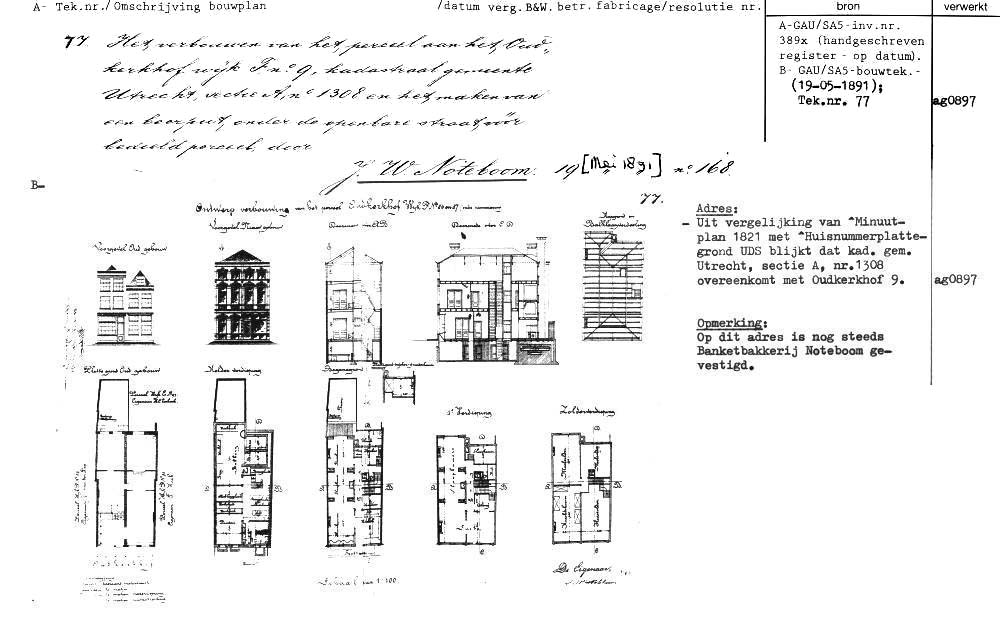 A- Tek.nr./Omschrijving bouwplan /datum verg.B&W. betr. fabricage/resolutie nr. bron verwerkt
77. Het verbouwen van het perceel aan het Oud-
kerkhof wijk F no 9, kadastraal gemeente
Utrecht, sectie A, no 1308 en het maken van
een beerput, onder de openbare straat vóór
bedoeld perceel, door
J. W. Noteboom. 19 [Mei 1891] no 168.
A-GAU/SA5-inv.nr.
389x (handgeschreven
register - op datum).
B- GAU/SA5-bouwtek.-
(19-05-1891);
Tek.nr. 77 ag0897
B-
77.
Ontwerp verbouwing van het perceel Oudkerkhof
Voorgevel Oud gebouw
Voorgevel Nieuw gebouw
Doorsnede over A B
Doorsnede over C D
Balklaag
Platte grond Oud gebouw
Kelder verdieping
1e Verdieping
Zolderverdieping
Schaal van 1:100.
De Eigenaar,
Adres:
- Uit vergelijking van ^Minuut-
plan 1821 met ^Huisnummerplatte-
grond UDS blijkt dat kad. gem.
Utrecht, sectie A, nr.1308
overeenkomt met Oudkerkhof 9. ag0897
Opmerking:
Op dit adres is nog steeds
Banketbakkerij Noteboom ge-
vestigd.